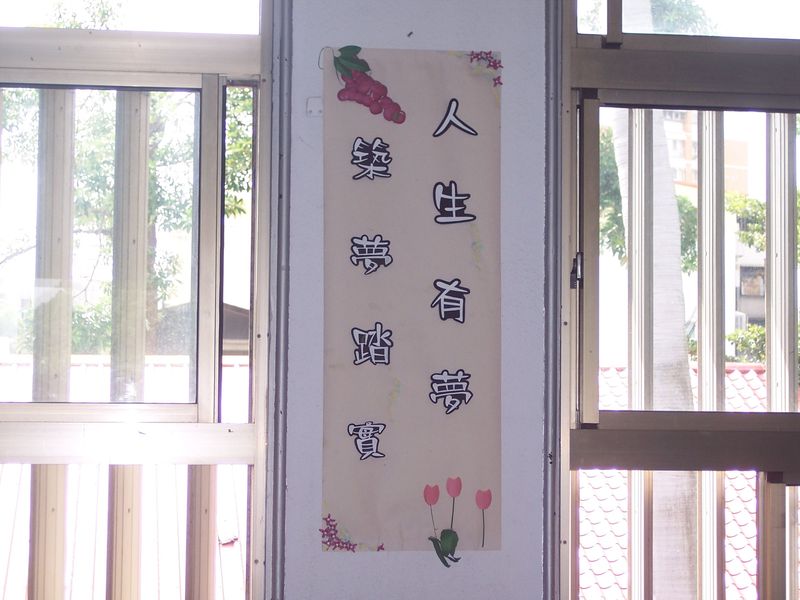 人生有夢
築夢踏實